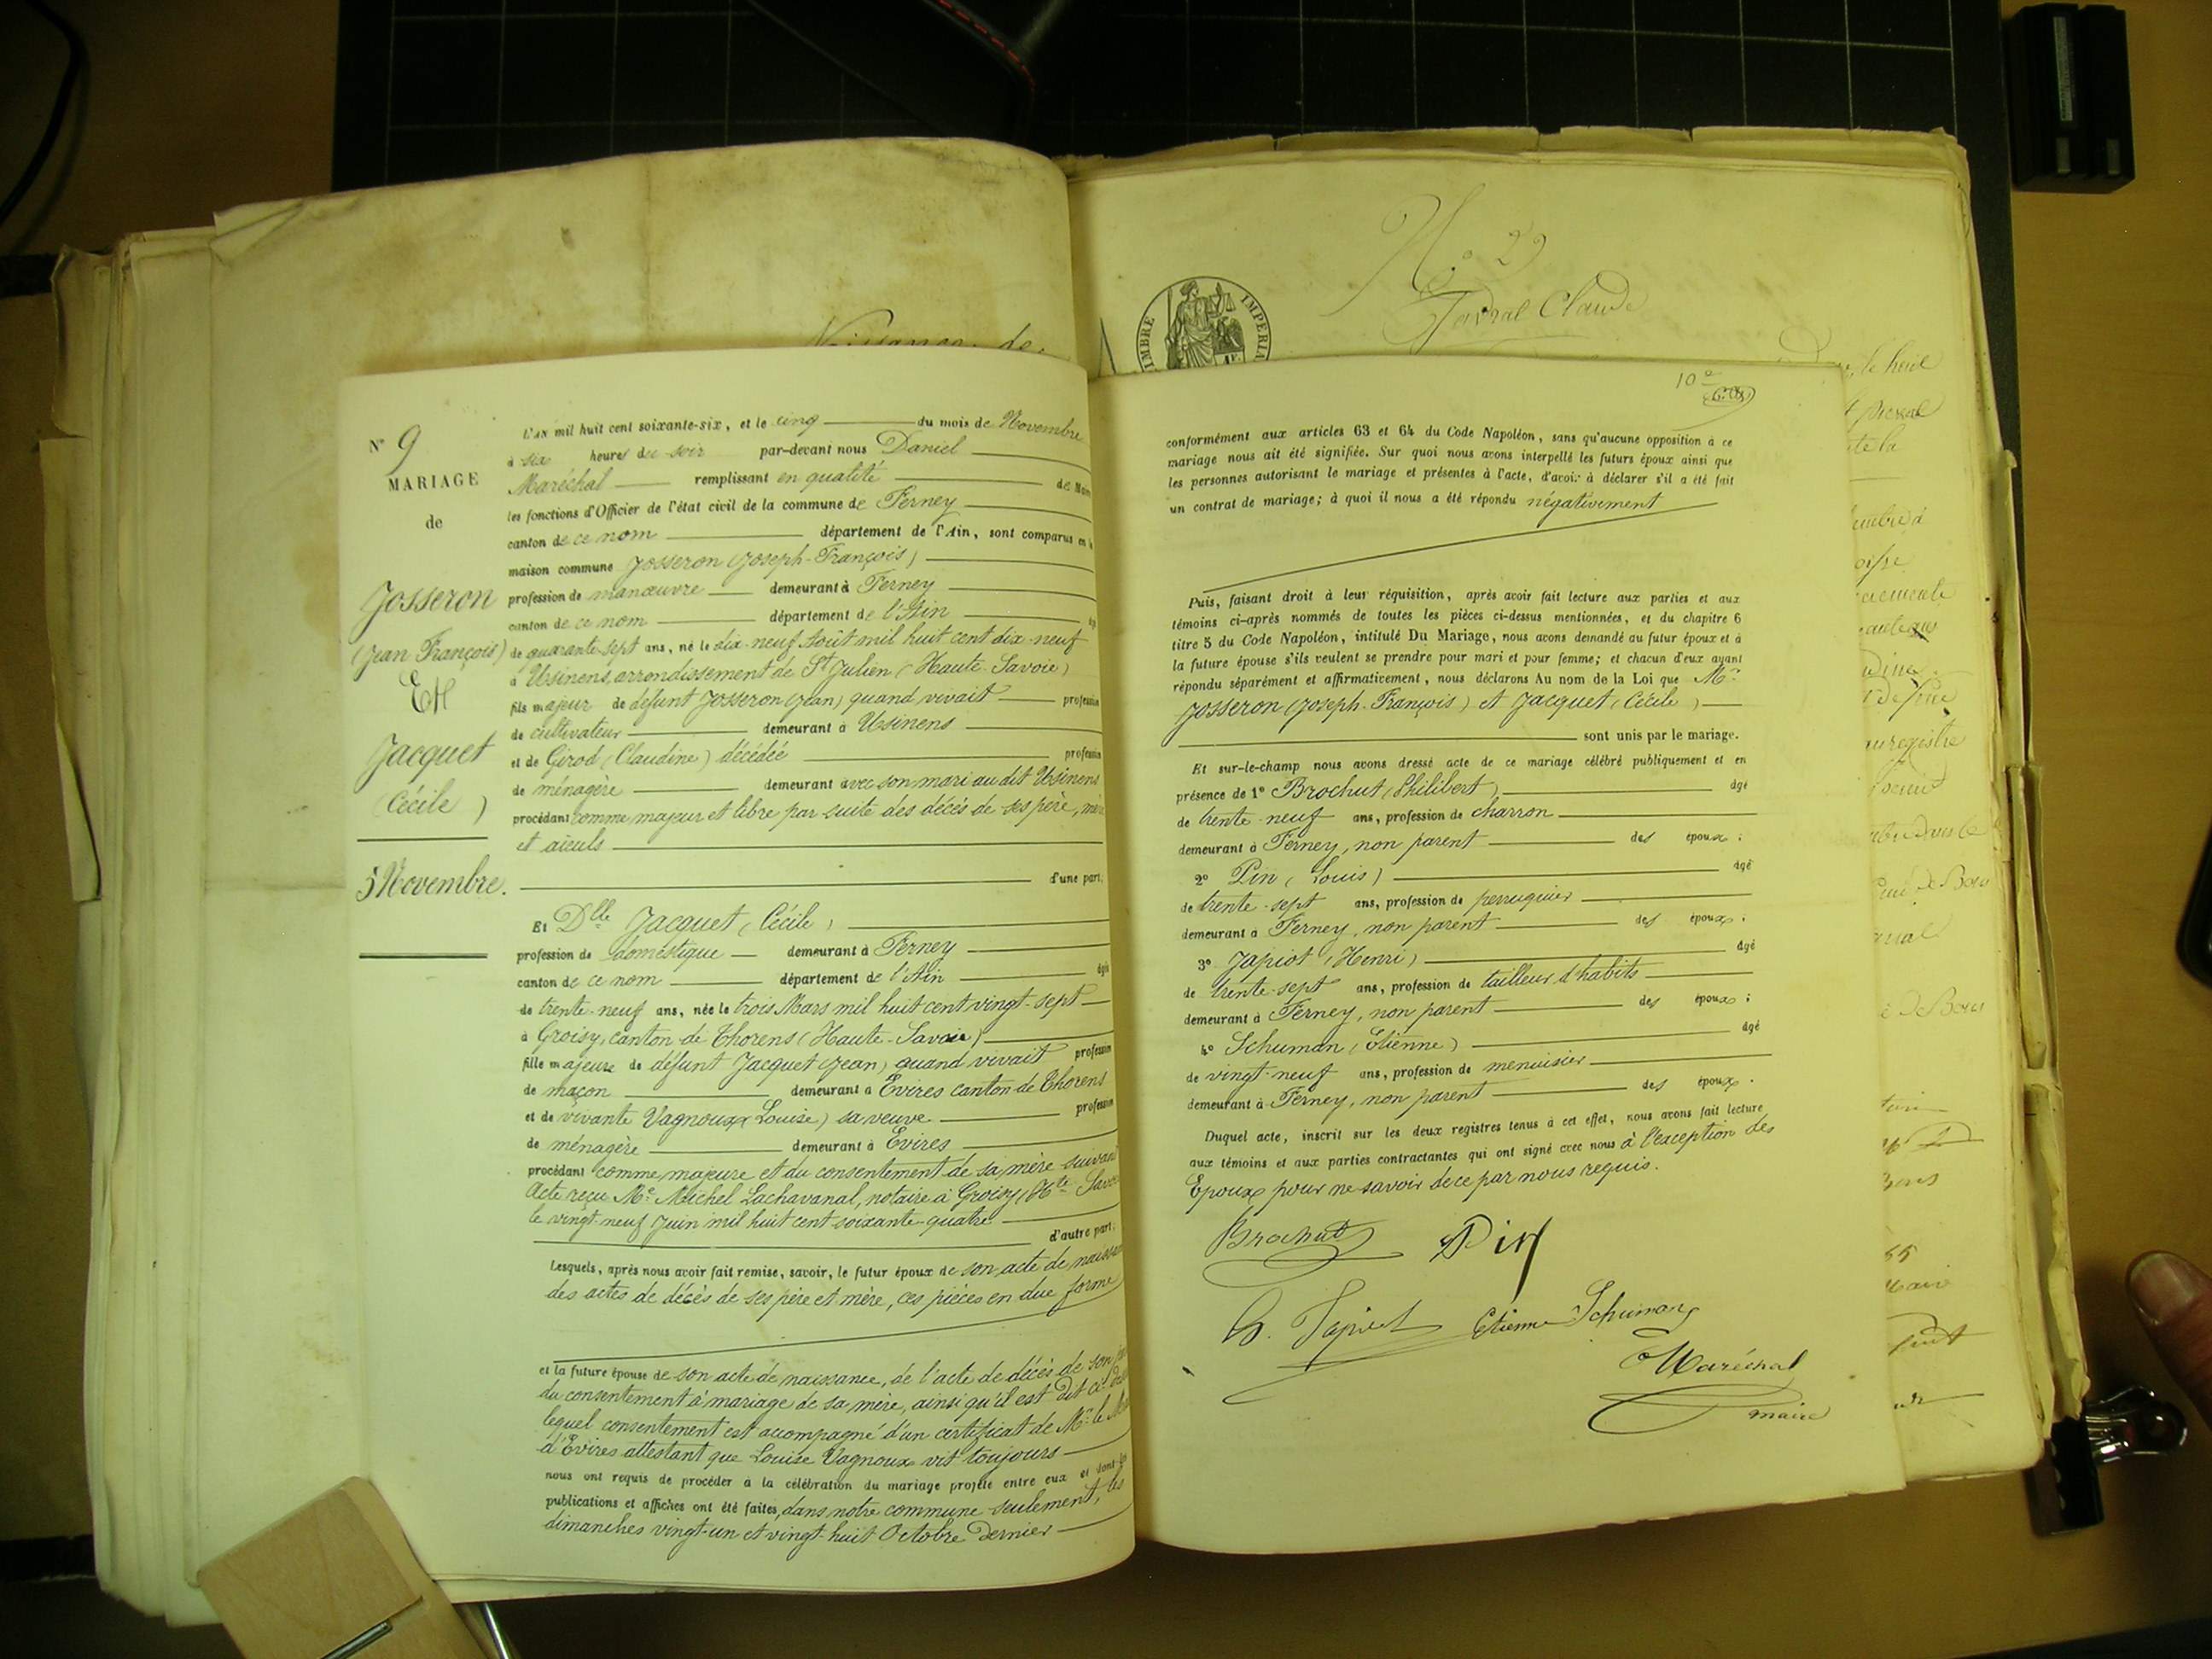 N° 9
MARIAGE
de
Josseron
(Jean François)
Et
Jacquet
(Cécile)
5 Novembre.
L'AN mil huit cent soixante-six, et le cinq du mois de Novembre
à six heures du soir par-devant nous Daniel
Maréchal remplissant en qualité de Maire
les fonctions d'Officier de l'état civil de la commune de Ferney
canton de ce nom département de l'Ain, sont comparus en la
maison commune Josseron (Joseph-François)
profession de manœuvre demeurant à Ferney
canton de ce nom département de l'Ain
de quarante-sept ans, né le dix-neuf Août mil huit cent dix-neuf
à Usinens, arrondissement de St Julien (Haute-Savoie)
fils majeur de défunt Josseron (Jean) quand vivait profession
de cultivateur demeurant à Usinens
et de Girod (Claudine) décédée profession
de ménagère demeurant avec son mari au dit Usinens
procédant comme majeur et libre par suite des décès de ses père, mère
et aïeuls
d'une part;
Et Dlle Jacquet (Cécile)
profession de domestique demeurant à Ferney
canton de ce nom département de l'Ain âgée
de trente-neuf ans, née le trois Mars mil huit cent vingt-sept
à Groisy, canton de Thorens (Haute-Savoie)
fille majeure de défunt Jacquet (Jean) quand vivait profession
de maçon demeurant à Evires canton de Thorens
et de vivante Vagnoux (Louise) sa veuve profession
de ménagère demeurant à Evires
procédant comme majeure et du consentement de sa mère suivant
Acte reçu Me Michel Lachavanal, notaire à Groisy (Hte Savoie
le vingt-neuf Juin mil huit cent soixante-quatre
d'autre part;
Lesquels, après nous avoir fait remise, savoir, le futur époux de son acte de naissance
des actes de décès de ses père et mère, ces pièces en due forme
et la future épouse de son acte de naissance, de l'acte de décès de son père
du consentement à mariage de sa mère, ainsi qu'il est dit ci-
lequel consentement est accompagné d'un certificat de Mr le Maire
d'Evires attestant que Louise Vagnoux vit toujours
nous ont requis de procéder à la célébration du mariage projeté entre eux et dont les
publications et affiches ont été faites, dans notre commune seulement, les
dimanches vingt-un et vingt-huit Octobre dernier
N° 29
Claude
TIMBRE IMPERIAL
10e
conformément aux articles 63 et 64 du Code Napoléon, sans qu'aucune opposition à ce
mariage nous ait été signifiée. Sur quoi nous avons interpellé les futurs époux ainsi que
les personnes autorisant le mariage et présentes à l'acte, d'avoir à déclarer s'il a été fait
un contrat de mariage; à quoi il nous a été répondu négativement
Puis, faisant droit à leur réquisition, après avoir fait lecture aux parties et aux
témoins ci-après nommés de toutes les pièces ci-dessus mentionnées, et du chapitre 6
titre 5 du Code Napoléon, intitulé Du Mariage, nous avons demandé au futur époux et à
la future épouse s'ils veulent se prendre pour mari et pour femme; et chacun d'eux ayant
répondu séparément et affirmativement, nous déclarons Au nom de la Loi que Mr
Josseron (Joseph-François) et Jacquet (Cécile)
sont unis par le mariage.
Et sur-le-champ nous avons dressé acte de ce mariage célébré publiquement et en
présence de 1° Brochut (Philibert), âgé
de trente-neuf ans, profession de charron
demeurant à Ferney, non parent des époux;
2° Pin (Louis) âgé
de trente-sept ans, profession de perruquier
demeurant à Ferney, non parent des époux;
3° Japiot (Henri) âgé
de trente-sept ans, profession de tailleur d'habits
demeurant à Ferney, non parent des époux;
4° Schuman (Etienne) âgé
de vingt-neuf ans, profession de menuisier
demeurant à Ferney, non parent des époux.
Duquel acte, inscrit sur les deux registres tenus à cet effet, nous avons fait lecture
aux témoins et aux parties contractantes qui ont signé avec nous à l'exception des
Epoux pour ne savoir de ce par nous requis.
Brochut Pin
H. Japiot Etienne Schuman
Maréchal
maire